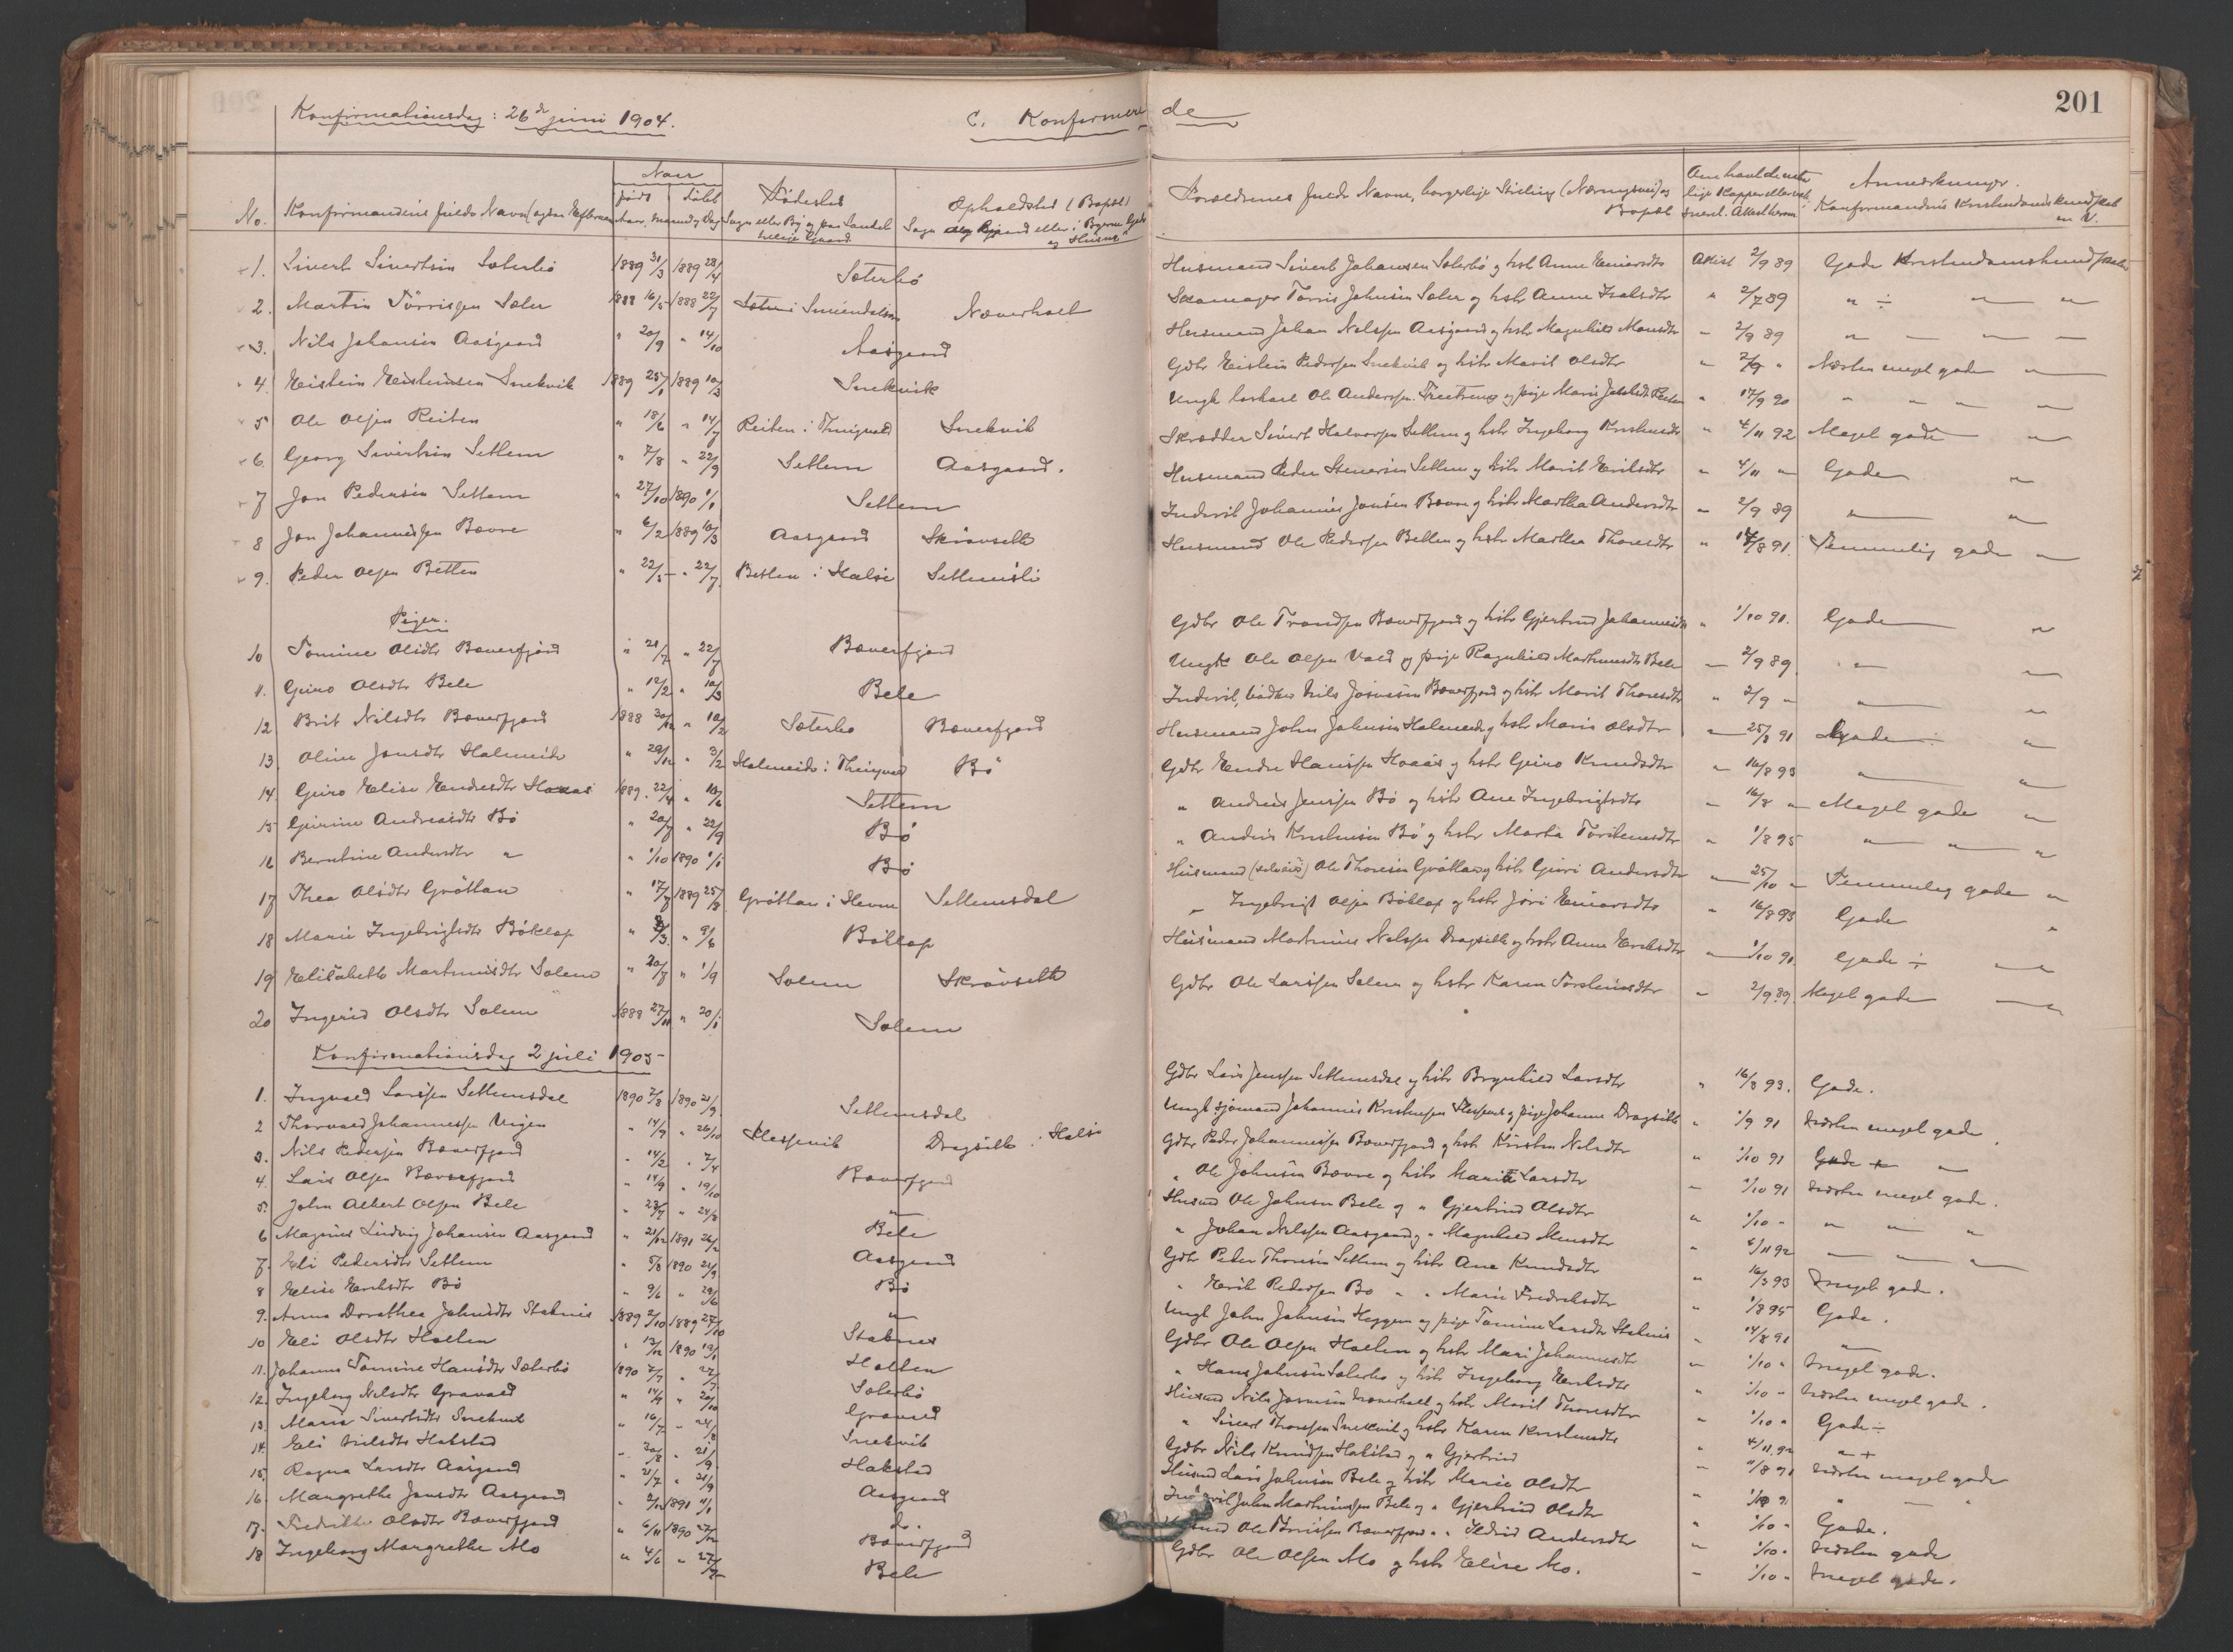 Konfirmationsdag: 26de juni 1904.
C. Konfirmere de
201
No.
Konfirmandens fulde Navn
Naar
født
døbt
Aar, maaned, Dag
Fødested
Opholdssted (Bopæl)
Forældrenes fulde Navne, borgerlige Stilling (Næringsvei) og Bopæl
Anmerkninger.
Konfirmandens Kristendomskundskab
1. Sivert Sivertsen Sæterbø 1889 31/3 1889 28/4 Sæterbø Husmand Sivert Johansen Sæterbø og hstr Anne Einarsdtr Attest 2/9 89 Gode Kristendomskundskaber
2. Martin Tørrissen Sæter 1888 16/5 1888 22/7 Næverholt Tørris Johnsen Sæter og hstr Anne " 2/7 89 " ÷ " "
3. Nils Johansen Aasgaard " 20/9 " 14/10 Aasgaard Husmand Johan Nilssen Aasgaard og hstr Magnhild Monsdtr " 2/9 89 " " " "
4. Eistein Eisteinsen Snekvik 1889 25/1 1889 10/3 Snekvik Gdbr Eistein Pedersen Snekvik og hstr Marit Olsdtr " 2/9 " Næsten meget gode "
5 Ole Olsen Reiten " 18/6 " 14/7 Reiten i Thingvold Snekvik Ungk Ole Anderssen og pige Marit " 17/9 90 " " " "
6. Georg Sivertsen Settem " 7/8 " 22/9 Settem Aasgaard. Skrædder Sivert Halvorsen Settem og hstr Ingeborg " 4/11 92 Meget gode "
7 Jon Pedersen Settem " 27/10 1890 1/1 Settem Husmand Peder Settem og hstr Marit Eriksdtr " 4/11 " Gode "
8 Jon Johannessen Bævre " 6/2 1889 10/3 Aasgaard Skrøvseth Inderst Johannes Jonsen Bævre og hstr Martha Andersdtr " 2/9 89 " "
9. Peder Olsen Betten " 22/5 " 22/7 Betten i Halse Settemsli Husmand Ole Pedersen Betten og hstr Marthe Thoresdtr " 14/8 91. Temmelig gode "
Piger.
10 Tomine Olsdtr Bæverfjord " 21/7 " 22/7 Bæverfjord Gdbr Ole Trondsen Bæverfjord og hstr Gjertrud Johannesdtr " 1/10 91. Gode "
11. Guro Olsdtr Bele " 12/2 " 10/3 Bele Ungk Ole Olsen Vold og pige Ragnhild Bele " 2/9 89 " "
12 Brit Nilsdtr Bæverfjord 1888 30/12 " 10/2 Sæterbø Bæverfjord Inderst, Nils Bæverfjord og hstr Marit Thoresdtr " 2/9 " " "
13. Oline Jonsdtr Halmeide " 29/12 " 3/2 Halmeide i Thingvold Bø Husmand John Johnsen Halmeide og hstr Marit Olsdtr " 25/8 91 Gode "
14. Guro Elise Endresdtr Hoaas 1889. 22/4 " 10/6 Settem Gdbr Endre Hanssen Hoaas og hstr Guro Knudsdtr " 16/8 93 " "
15 Gurine Andreasdtr Bø " 20/7 " 22/9 Bø " Andreas Jenssen Bø og hstr Ane Ingebrigtsdtr " 16/8 " Meget gode "
16 Berntine Andersdtr " " 1/10 1890 1/1 Bø " Anders Bø og hstr Marta Torstensdtr " 1/8 95 " " "
17 Thea Olsdtr Grøttan " 17/7 1889 25/8 Grøttan i Hevne Settemsdal Husmand Ole Thoresen Grøttan og hstr Guri Andersdtr " 25/10 " Temmelig gode "
18 Marie Ingebrigtsdtr Bøklep " 2/3 " 9/6 Bøklep " Ingebrigt Olsen Bøklep og hstr Jøri Einarsdtr " 16/8 93 Gode "
19 Elisabeth Martinusdtr Solem " 20/7 " 1/9 Solem Skrøvseth Husmand Martinus Nilssen Dragseth og hstr Anne Eriksdtr " 1/10 91. Gode ÷ "
20 Ingerid Olsdtr Solem 1888 27/11 " 20/1 Solem Gdbr Ole Larssen Solem og hstr Karen Torsteinsdtr " 2/9 89. Meget gode "
Konfirmationsdag 2 juli 1905
1. Ingvald Larssen Settemsdal 1890 7/8 1890 21/9 Settemsdal Gdbr Lars Jenssen Settemsdal og hstr Brynhild Larsdtr " 16/8 93. Gode.
2 Thorvald Johannessen Vigen " 14/9 " 26/10 Dragseth i Halse Ungk sjømand Johannes og pige Johanne Dragseth " 1/9 91 Næsten meget gode.
3. Nils Pedersen Bæverfjord " 14/2 " 7/4 Bæverfjord Gdbr Peder Johannessen Bæverfjord og hstr Kirsten Nilsdtr " 1/10 91 Gode + "
4. Lars Olsen Bæverfjord " 14/9 " 19/10 " " Ole Johnsen Bævre og hstr Marit Larsdtr " 1/10 91 Næsten meget gode.
5. John Albert Olsen Bele " 24/8 Bele Husmd Ole Johnsen Bele og " Gjertrud Olsdtr " 1/10 " " " "
6 Magnus Ludvig Johansen Aasgaard " 21/12 1891 26/2 Aasgaard " Johan Nilssen Aasgaard og " Magnhild Monsdtr " 6/11 92 " " "
7. Eli Pedersdtr Settem " 5/8 1890 21/9 Gdbr Peder Thoresen Settem og hstr Ane Knudsdtr " 16/8 93 Meget gode.
8 Elise Eriksdtr Bø " 9/6 " 29/6 Bø " Erik Pedersen Bø " " Marie Fredriksdtr " 1/8 95 Gode.
9. Anna Dorothea Johnsdtr Stabnes 1889 2/10 1889 27/10 Stabnes Ungk John Johnsen Heggem og pige Tomine Larsdtr Stabnes " 14/8 91 "
10 Eli Olsdtr Holten " 13/12 1890 Holten Gdbr Ole Olsen Holten og hstr Mari Johannesdtr " 1/10 " Meget gode.
11. Johanne Tomine Hansdtr Sæterbø 1890 7/7 " 27/7 Sæterbø " Hans Johnsen Sæterbø og hstr Ingeborg Eriksdtr " 1/10 " Næsten meget gode.
12. Ingeborg Nilsdtr Gravold " 14/9 " 20/10 Gravold Husmd Nils Næverholt og hstr Marit Thoresdtr " 1/10 " Gode ÷
13. Marie Sivertsdtr Snekvik " 16/7 Snekvik " Sivert Thoressen Snekvik og hstr Karen " 4/11 92 " +
14. Eli Nilsdtr Hakstad " 20/8 " 21/9 Hakstad Gdbr Nils Knudsen Hakstad og " Gjertrud " 11/8 91 Næsten meget gode
15. Ragna Larsdtr Aasgaard " 21/7 " 21/9 Aasgaard Husmd Lars Johnsen Bele og hstr Marie Olsdtr
16. Margrethe Jonsdtr Aasgaard " 1891 do. John Martinussen Bele og " Gjertrud Olsdtr " 1/10 " Gode.
17. Fredrikke Olsdtr Bæverfjord " 6/11 1890 Bæverfjord Ole Bæverfjord " " Andersdtr " 1/10 " Næsten gode
18 Ingeborg Margrethe Mo " 4/6 " Bele Gdbr Ole Olsen Mo og hstr Elise Mo. " 1/10 " Meget gode.